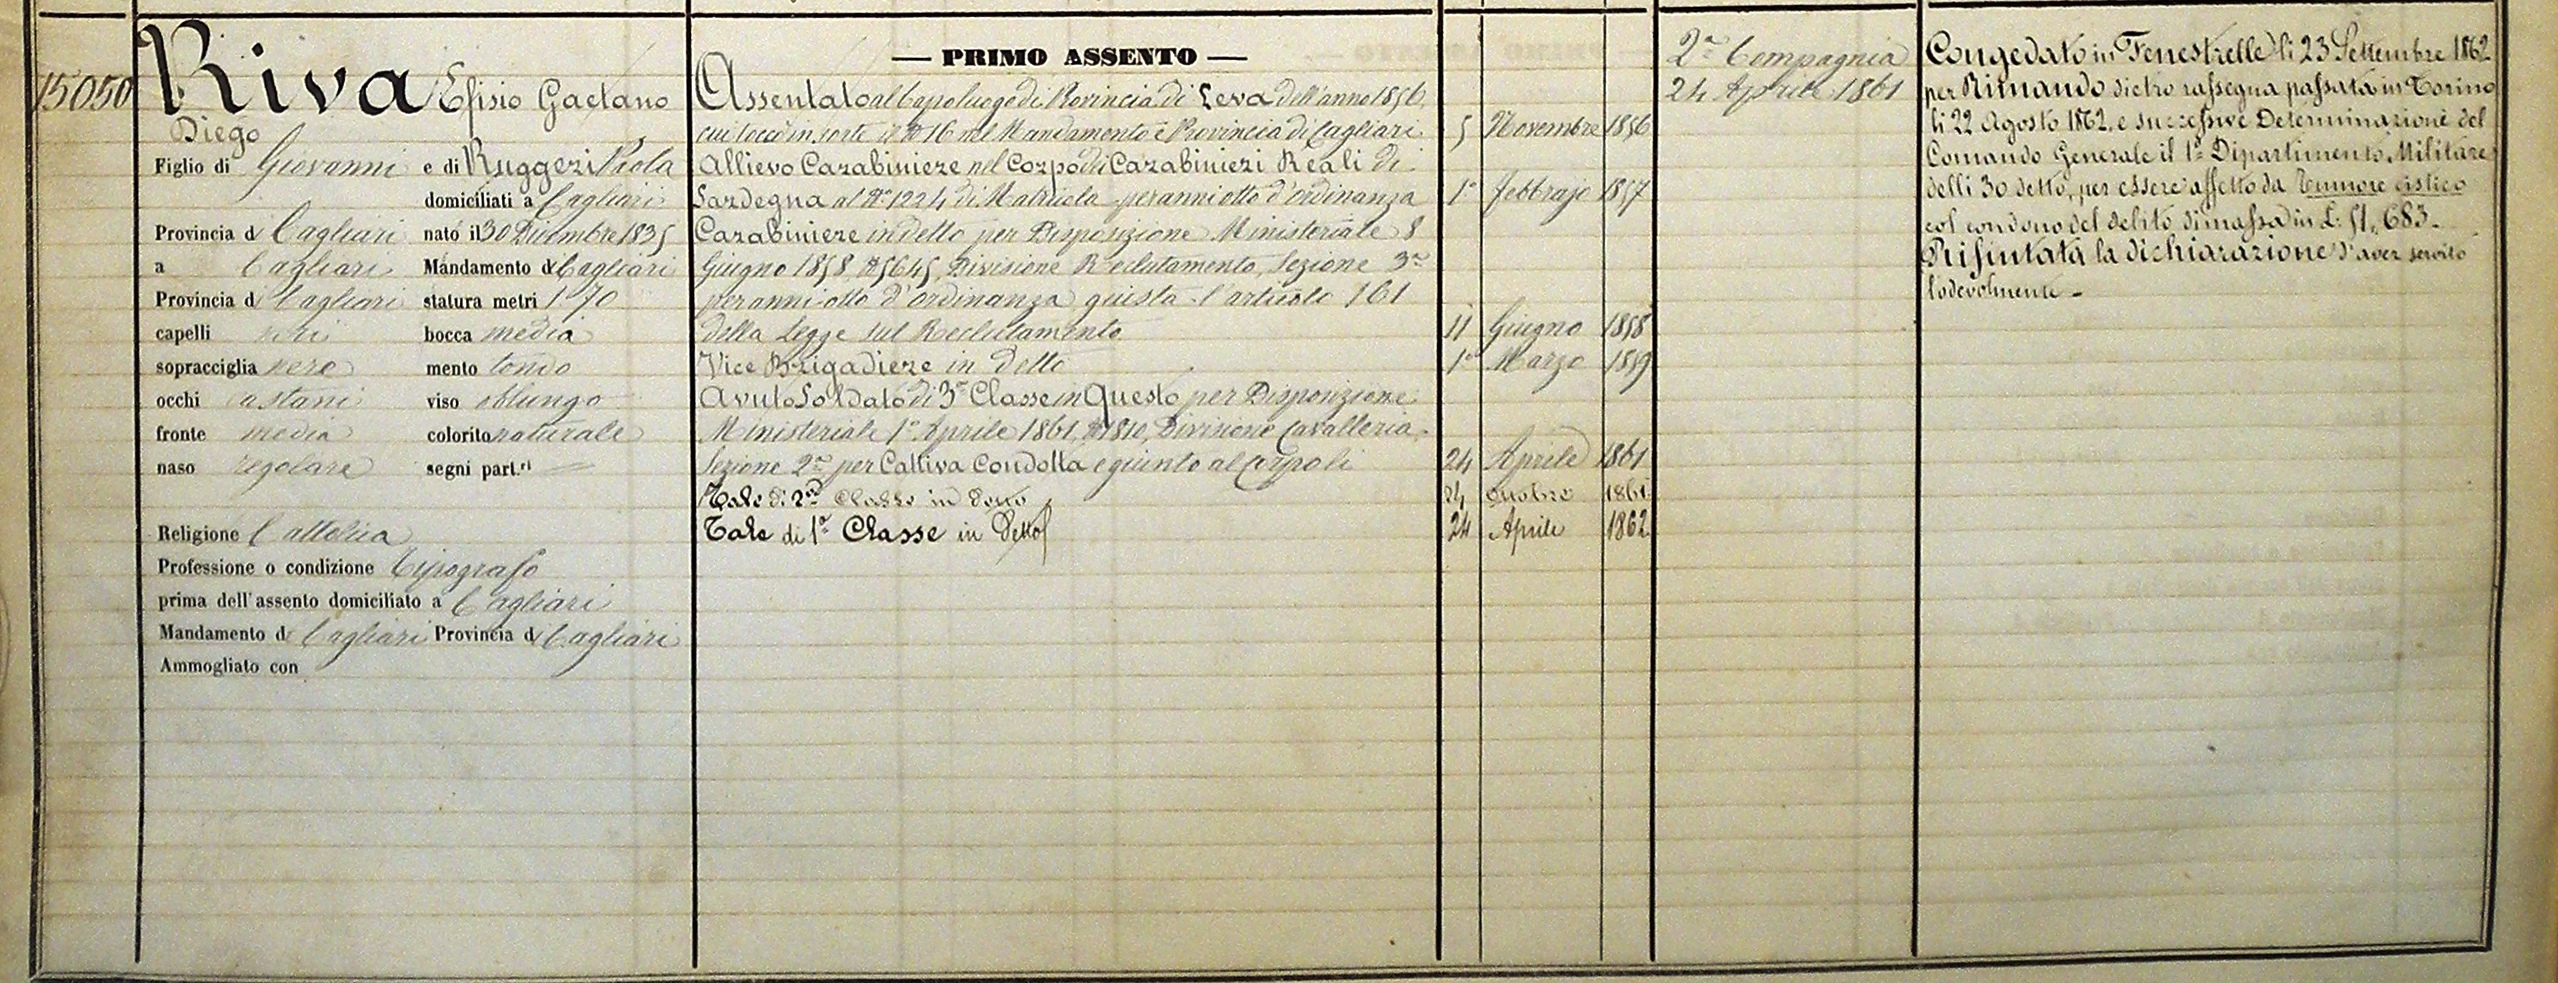 15050
Riva Efisio Gaetano
Diego
Figlio di Giovanni e di Ruggeri Paola
domiciliati a Cagliari
Provincia d Cagliari nato il 30 Dicembre 1835
a Cagliari Mandamento d Cagliari
Provincia d Cagliari statura metri 1 70
capelli neri bocca media
sopracciglia nere mento tondo
occhi castani viso oblungo
fronte media colorito naturale
naso regolare segni part.ri
Religione Cattolica
Professione o condizione Tipografo
prima dell'assento domiciliato a Cagliari
Mandamento d Cagliari Provincia d Cagliari
Ammogliato con
— PRIMO ASSENTO —
Assentato al Capoluogo di Provincia di Leva dell'anno 1856
cui toccò in sorte il N° 16 nel Mandamento e Provincia di Cagliari 5 Novembre 1856
Allievo Carabiniere nel Corpo di Carabinieri Reali di
Sardegna al N° 1224 di Matricola per anni otto d'ordinanza 1° Febbrajo 1857
Carabiniere in detto per Disposizione Ministeriale 8
Giugno 1858, N° 5645, Divisione Reclutamento, Sezione 3a
per anni otto d'ordinanza giusta l'articolo 161
della Legge sul Reclutamento 11 Giugno 1858
Vice Brigadiere in detto 1° Marzo 1859
Avuto Soldato di 3a Classe in Questo per Disposizione
Ministeriale 1° Aprile 1861, N° 1810, Divisione Cavalleria,
Sezione 2a per Cattiva Condotta e giunto al Corpo li 24 Aprile 1861
Tale di 2a Classe in detto 24 Ottobre 1861
Tale di 1a Classe in Detto 24 Aprile 1862
2a Compagnia
24 Aprile 1861
Congedato in Fenestrelle li 23 Settembre 1862
per Rimando dietro rassegna passata in Torino
li 22 Agosto 1862, e successive Determinazione del
Comando Generale il 1° Dipartimento Militare
delli 30 detto, per essere affetto da Tumore cistico
col condono del debito di massa in L: 51, 683.
Rifiutata la dichiarazione d'aver servito
lodevolmente